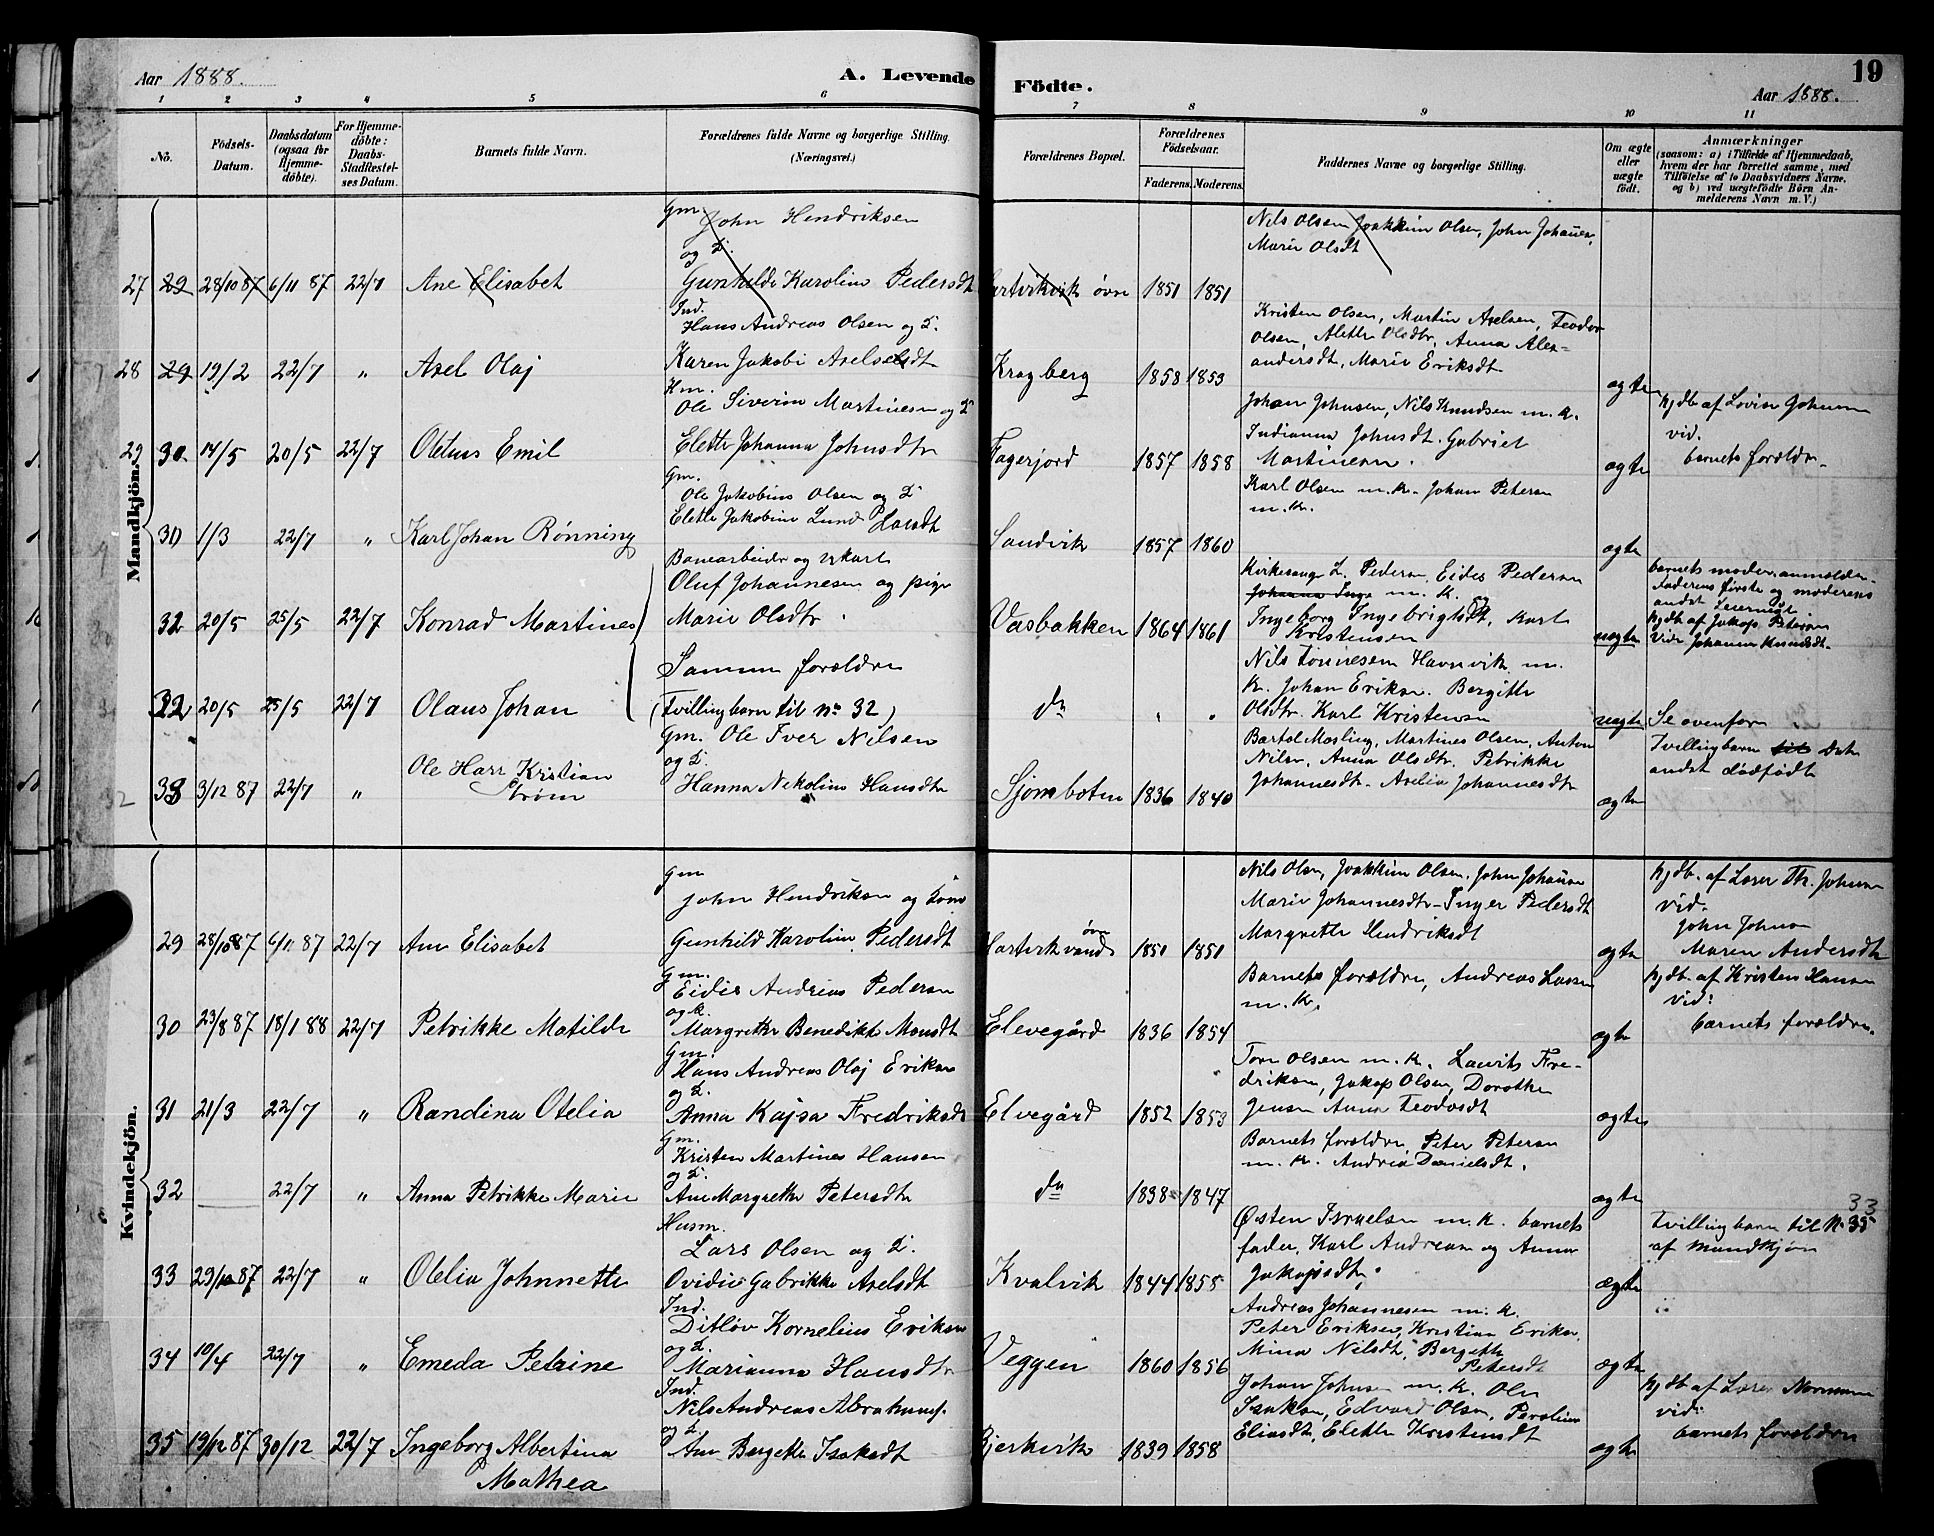 Aar 1888.
A. Levende Födte.
Aar 1888.
19
1 2 3 4 5 6 7 8 9 10 11
No.
Födsels-Datum.
Daabsdatum (ogsaa for Hjemme-döbte).
For Hjemme-döbte: Daabs-Stadfæstel-ses Datum.
Barnets fulde Navn.
Forældrenes fulde Navne og borgerlige Stilling.
(Næringsvei.)
Forældrenes Bopæl.
Forældrenes Födselsaar.
Faderens. Moderens.
Faddernes Navne og borgerlige Stilling.
Om ægte eller uægte födt.
Anmærkninger
(saasom: a) i Tilfælde af Hjemmedaab,
hvem der har forrettet samme, med
Tilföielse af to Daabsvidners Navne,
og b) ved uægtefödte Börn An-
melderens Navn m. V.)
Mandkjön.
Gm John Hendriksen
og D.
27 29 28/10 87 6/11 87 22/7 Ane Elisabet Gunhilde Karoline Pedersdt øvre 1851 1851
Nils Olsen Joakkim Olsen, John Johansen,
Marie Olsdt
Ind.
Hans Andreas Olsen og D.
28 29 19/2 22/7 " Axel Olaj Karen Jakobi Axelsdt Kragberg 1858 1853 ægte
Kristen Olsen, Martin Axelsen, Teodor
Olsen, Alette Olsdtr, Anna Alex-
andersdt, Marie Eriksdt
Hm.
Ole Siverin Martinesen og D
29 30. 14/5 20/5 22/7 Oletus Emil Elette Johanna Johnsdtr Fagerjord 1857 1858 ægte
Johan Johnsen, Nils Knudsen m. k.
Indianna Johnsdt. Gabriel
Martinesen.
hjdb. af Lovise Johnsen
vid.
barnets forældre.
Gm.
Ole Jakobius Olsen og D
Elette Jakobine Lund
30 1/3 22/7 " Karl Johan Rønning Sandvik 1857 1860 ægte
Karl Olsen m. k. Johan Petersen
m. k.
Banearbeider og
Oluf Johannesen og pige
32 20/5 25/5 22/7 Konrad Martines Marie Olsdtr Vasbakken 1864 1861 uægte
Kirkesanger L. Pedersen, Eides Pedersen
m. k. og
Ingeborg Ingebrigtsdt, Karl
Kristensen
barnets moder anmelder.
Faderens første og moderens
andet Leiermaal.
hjdb. af Jakop Petersen
Vid. Johanna
Samme forældre
32 20/5 25/5 22/7 Olaus Johan (Tvillingbarn til No 32) do " " uægte Se ovenfor
Nils Tønnesen Havnvik m.
k. Johan Eriksen. Bergitte
Olsdtr. Karl Kristensen
Gm. Ole Iver Nilsen
og D.
33 3/12 87 22/7 " Ole Hars Kristian Strøm Hanna Nikoline Hansdtr Sjombotn 1836 1840 ægte
Bartol Mosling, Martines Olsen, Anton
Nilsen, Anna Olsdtr, Petrikke
Johannesdt. Axelia Johannesdtr
Tvillingbarn det
andet dødfødt
32
Kvindekjön.
Gm
John Hendriksen og Kone
29 28/10 87 6/11 87 22/7 Ane Elisabet Gunhild Karoline Pedersdt Hartvikvand øvre 1851 1851 ægte
Nils Olsen, Joakkim Olsen, John Johansen
Marie Johannesdtr Inger Pedersdt
Margrette Hendriksdt
hjdb. af Lærer Th. Johnsen
vid.
John Johnsen
Maren Andersdtr
Gm.
Eides Andreas Pedersen
og k.
30 23/8 87 18/1 88 22/7 Petrikke Matilde Margrethe Benedikte Monsdt Elevegård 1836 1854 ægte
Barnets forældre, Andreas Larsen
m. k.
hjdb. af Kristen Hansen
vid:
barnets forældre.
Gm.
Hans Andreas Olaj Eriksen
og D.
31 21/3 22/7 " Randina Otelia Anna Kajsa Fredriksdt Elvegård 1852 1853 ægte
Tore Olsen m. k. Laurits Fre-
driksen, Jakop Olsen, Dorothea
Jensen Anna Teodorsdt
Gm.
Kristen Martines Hansen
og D.
32 — 22/7 " Anna Petrikke Marie Ane Margrethe Petersdtr do 1838 1847 ægte
Barnets forældre, Peter Petersen
m. k. Andrea Danielsdt.
Husm.
Lars Olsen og D.
33 29/10 87 22/7 " Otelia Johnnette Ovidie Gabrikke Axelsdt Kvalvik 1844 1858 ægte
Østen Israelsen m. k. barnets
fader, Karl Andreasen og Anna
Jakopsdtr.
33
Tvillingbarn til No 35
af Mandkjøn
Ind.
Ditløv Kornelius Eriksen
og D.
34 10/4 22/7 " Emeda Petrine Marianna Hansdtr Veggen 1860 1856 ægte
Andreas Johannesen m. k.
Peter Eriksen, Kristian Eriksen,
Mina Nilsdt, Bergette
Petersdt
Ind.
Nils Andreas Abrahamsen
og D.
35 19/12 87 30/12 22/7 Ingeborg Albertina Mathea Ane Bergette Isaksdt Bjerkvik 1839 1858 ægte
Johan Johnsen m. k. Ole
Isaksen, Edvard Olsen,
Eliasdt, Elette Kristensdt
hjdb. af Lærer Normann
vid:
barnets forældre